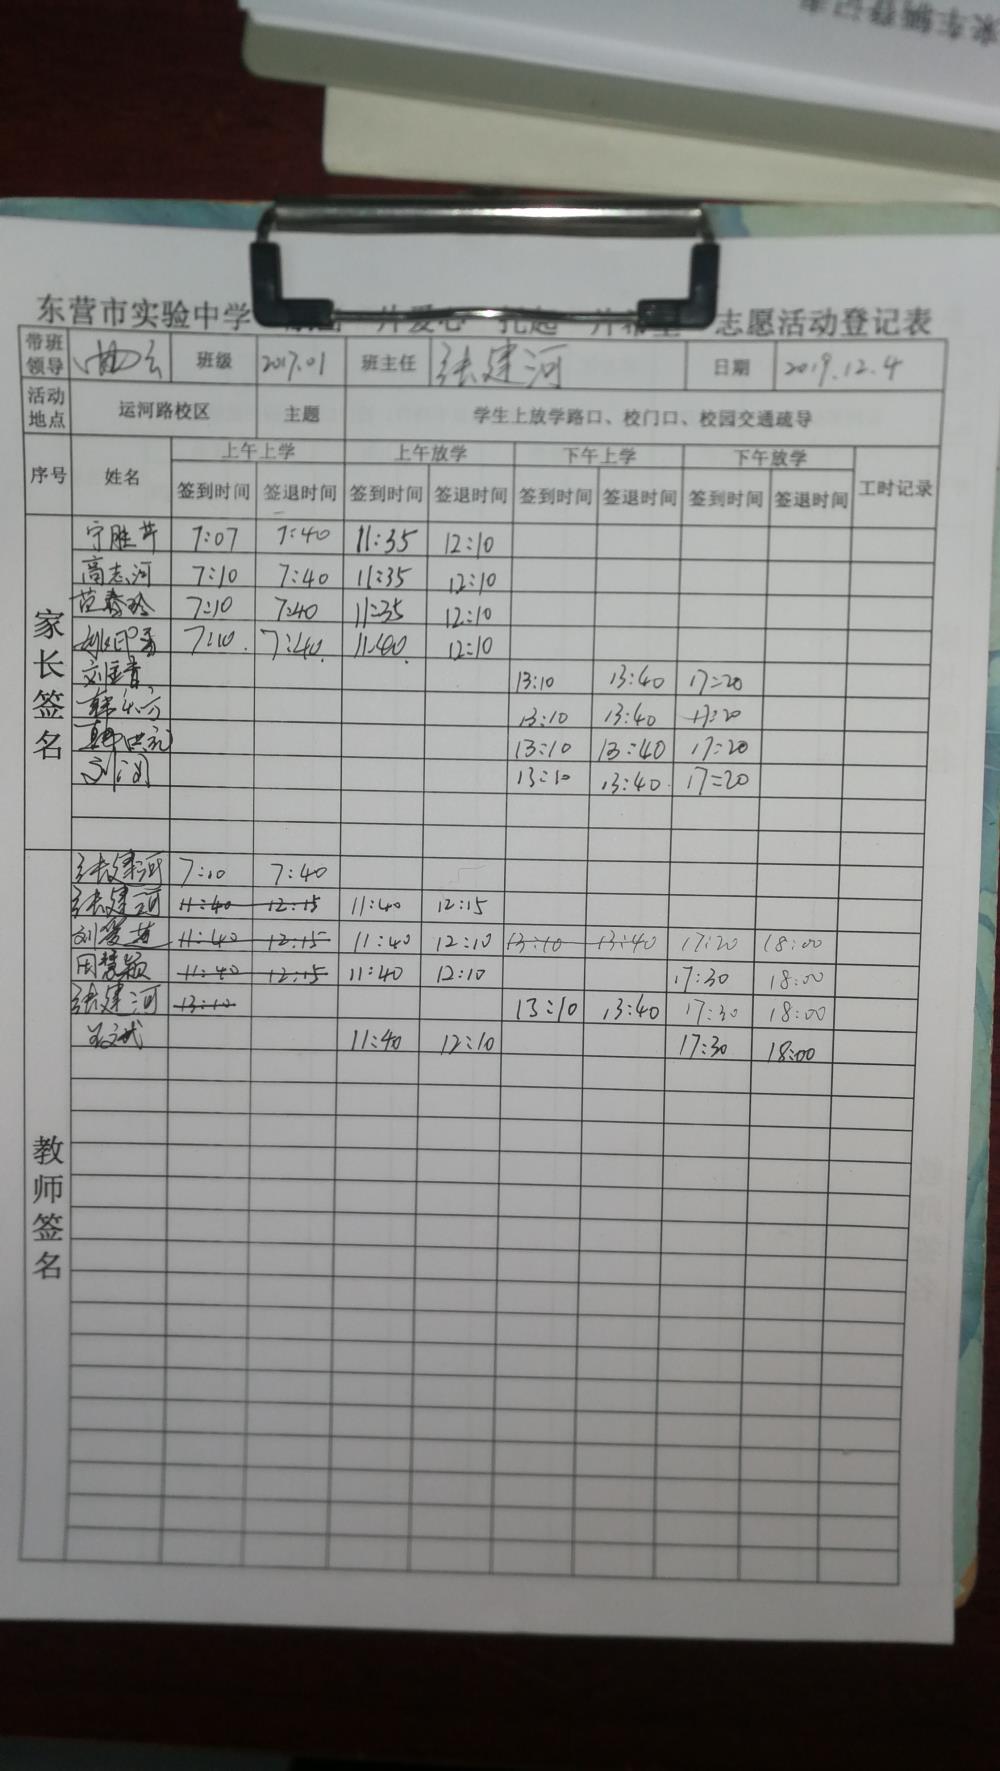 东营市实验中学 志愿活动登记表
带班领导 班级 2017.01 班主任 张建河 日期 2019.12.4
活动地点 运河路校区 主题 学生上放学路口、校门口、校园交通疏导
序号 姓名 上午上学 上午放学 下午上学 下午放学 工时记录
签到时间 签退时间 签到时间 签退时间 签到时间 签退时间 签到时间 签退时间
家长签名
宁胜芹 7:07 7:40 11:35 12:10
高志河 7:10 7:40 11:35 12:10
范春玲 7:10 7:40 11:35 12:10
7:10. 7:40. 11:40. 12:10
13:10 13:40 17:20
13:10 13:40 17:20
13:10 13:40 17:20
13:10 13:40. 17:20
教师签名
张建河 7:10 7:40
张建河 11:40 12:15 11:40 12:15
11:40 12:15 11:40 12:10 13:10 13:40 17:20 18:00
周慧颖 11:40 12:15 11:40 12:10 17:30 18:00
张建河 13:10 13:10 13:40 17:30 18:00
11:40 12:10 17:30 18:00